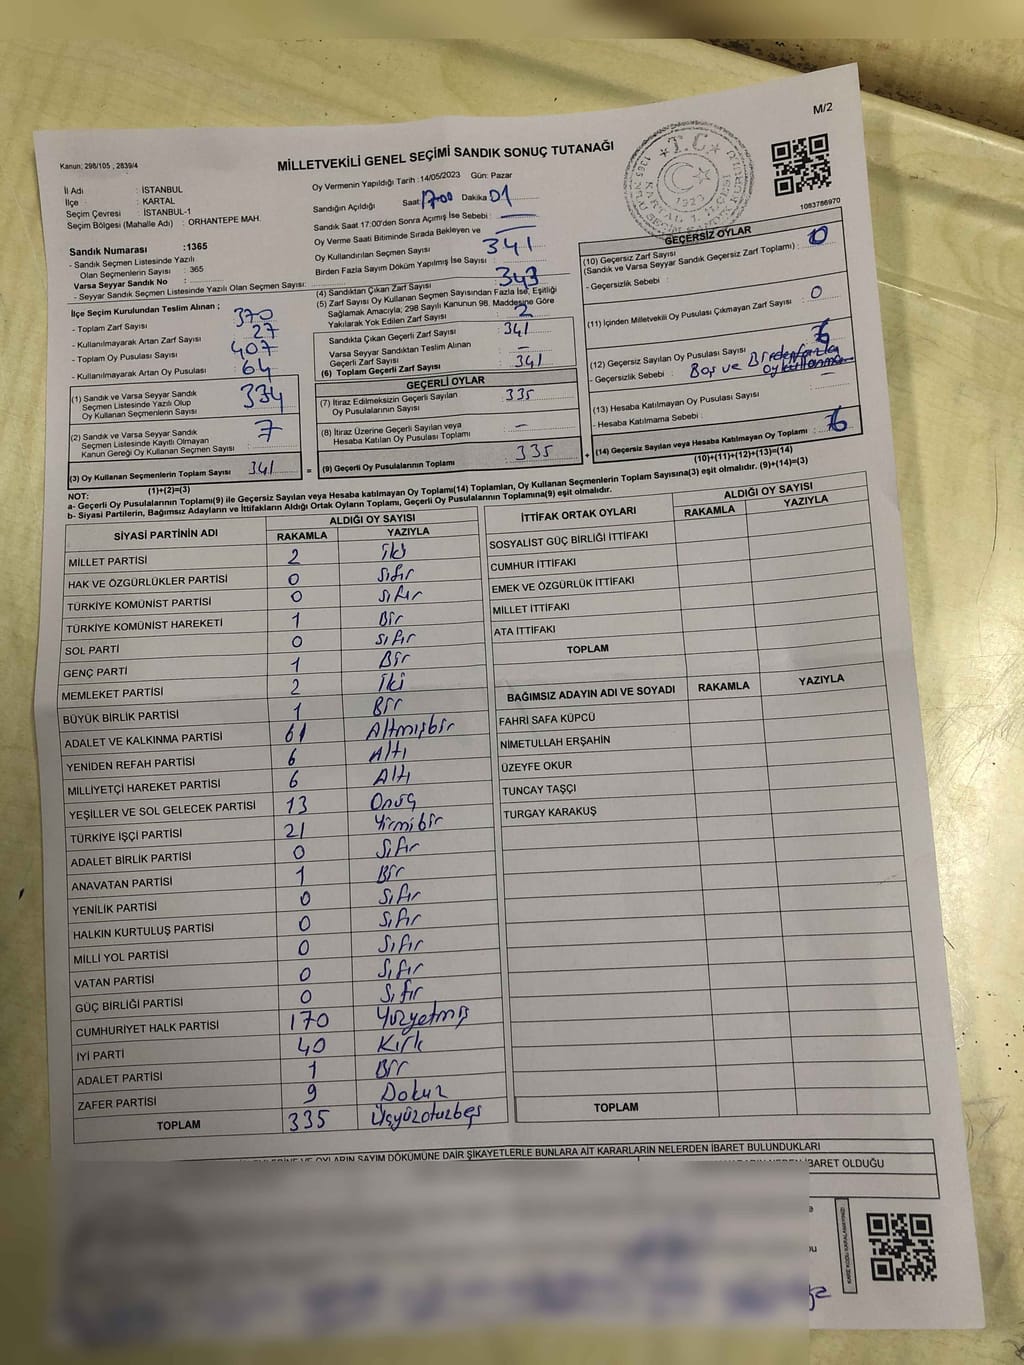 M/2
Kanun: 298/105 , 2839/4
MİLLETVEKİLİ GENEL SEÇİMİ SANDIK SONUÇ TUTANAĞI
İl Adı : İSTANBUL
İlçe : KARTAL
Seçim Çevresi : İSTANBUL-1
Seçim Bölgesi (Mahalle Adı) : ORHANTEPE MAH.
Sandık Numarası :1365
- Sandık Seçmen Listesinde Yazılı
Olan Seçmenlerin Sayısı : 365
Varsa Seyyar Sandık No :
- Seyyar Sandık Seçmen Listesinde Yazılı Olan Seçmen Sayısı:
Oy Vermenin Yapıldığı Tarih :14/05/2023 Gün: Pazar
Sandığın Açıldığı Saat: 17:00 Dakika 01
Sandık Saat 17:00'den Sonra Açılmış İse Sebebi :
Oy Verme Saati Bitiminde Sırada Bekleyen ve
Oy Kullandırılan Seçmen Sayısı 341
Birden Fazla Sayım Döküm Yapılmış İse Sayısı :
1083786970
İlçe Seçim Kurulundan Teslim Alınan ;
- Toplam Zarf Sayısı 370
- Kullanılmayarak Artan Zarf Sayısı 27
- Toplam Oy Pusulası Sayısı 407
- Kullanılmayarak Artan Oy Pusulası 64
(1) Sandık ve Varsa Seyyar Sandık
Seçmen Listesinde Yazılı Olup
Oy Kullanan Seçmenlerin Sayısı 334
(2) Sandık ve Varsa Seyyar Sandık
Seçmen Listesinde Kayıtlı Olmayan
Kanun Gereği Oy Kullanan Seçmen Sayısı 7
(3) Oy Kullanan Seçmenlerin Toplam Sayısı 341
(1)+(2)=(3)
(4) Sandıktan Çıkan Zarf Sayısı 343
(5) Zarf Sayısı Oy Kullanan Seçmen Sayısından Fazla İse, Eşitliği
Sağlamak Amacıyla; 298 Sayılı Kanunun 98. Maddesine Göre
Yakılarak Yok Edilen Zarf Sayısı 2
Sandıkta Çıkan Geçerli Zarf Sayısı 341
Varsa Seyyar Sandıktan Teslim Alınan
Geçerli Zarf Sayısı
(6) Toplam Geçerli Zarf Sayısı : 341
GEÇERLİ OYLAR
(7) İtiraz Edilmeksizin Geçerli Sayılan
Oy Pusulalarının Sayısı 335
(8) İtiraz Üzerine Geçerli Sayılan veya
Hesaba Katılan Oy Pusulası Toplamı
= (9) Geçerli Oy Pusulalarının Toplamı : 335
GEÇERSİZ OYLAR
(10) Geçersiz Zarf Sayısı
(Sandık ve Varsa Seyyar Sandık Geçersiz Zarf Toplamı) : 0
- Geçersizlik Sebebi :
(11) İçinden Milletvekili Oy Pusulası Çıkmayan Zarf Sayısı : 0
(12) Geçersiz Sayılan Oy Pusulası Sayısı : 6
- Geçersizlik Sebebi : Boş ve Birden fazla
oy kullanma
(13) Hesaba Katılmayan Oy Pusulası Sayısı
- Hesaba Katılmama Sebebi :
+ (14) Geçersiz Sayılan veya Hesaba Katılmayan Oy Toplamı : 6
(10)+(11)+(12)+(13)=(14)
NOT:
a- Geçerli Oy Pusulalarının Toplamı(9) ile Geçersiz Sayılan veya Hesaba katılmayan Oy Toplamı(14) Toplamları, Oy Kullanan Seçmenlerin Toplam Sayısına(3) eşit olmalıdır. (9)+(14)=(3)
b- Siyasi Partilerin, Bağımsız Adayların ve İttifakların Aldığı Ortak Oyların Toplamı, Geçerli Oy Pusulalarının Toplamına(9) eşit olmalıdır.
SİYASİ PARTİNİN ADI ALDIĞI OY SAYISI
RAKAMLA YAZIYLA
MİLLET PARTİSİ 2 iki
HAK VE ÖZGÜRLÜKLER PARTİSİ 0 sıfır
TÜRKİYE KOMÜNİST PARTİSİ 0 sıfır
TÜRKİYE KOMÜNİST HAREKETİ 1 Bir
SOL PARTİ 0 sıfır
GENÇ PARTİ 1 Bir
MEMLEKET PARTİSİ 2 iki
BÜYÜK BİRLİK PARTİSİ 1 Bir
ADALET VE KALKINMA PARTİSİ 61 Altmışbir
YENİDEN REFAH PARTİSİ 6 Altı
MİLLİYETÇİ HAREKET PARTİSİ 6 Altı
YEŞİLLER VE SOL GELECEK PARTİSİ 13 Onüç
TÜRKİYE İŞÇİ PARTİSİ 21 Yirmibir
ADALET BİRLİK PARTİSİ 0 Sıfır
ANAVATAN PARTİSİ 1 Bir
YENİLİK PARTİSİ 0 Sıfır
HALKIN KURTULUŞ PARTİSİ 0 Sıfır
MİLLİ YOL PARTİSİ 0 Sıfır
VATAN PARTİSİ 0 Sıfır
GÜÇ BİRLİĞİ PARTİSİ 0 Sıfır
CUMHURİYET HALK PARTİSİ 170 Yüzyetmiş
İYİ PARTİ 40 Kırk
ADALET PARTİSİ 1 Bir
ZAFER PARTİSİ 9 Dokuz
TOPLAM 335 Üçyüzotuzbeş
İTTİFAK ORTAK OYLARI ALDIĞI OY SAYISI
RAKAMLA YAZIYLA
SOSYALİST GÜÇ BİRLİĞİ İTTİFAKI
CUMHUR İTTİFAKI
EMEK VE ÖZGÜRLÜK İTTİFAKI
MİLLET İTTİFAKI
ATA İTTİFAKI
TOPLAM
BAĞIMSIZ ADAYIN ADI VE SOYADI RAKAMLA YAZIYLA
FAHRİ SAFA KÜPCÜ
NİMETULLAH ERŞAHİN
ÜZEYFE OKUR
TUNCAY TAŞÇI
TURGAY KARAKUŞ
TOPLAM
OYLARIN SAYIM DÖKÜMÜNE DAİR ŞİKAYETLERLE BUNLARA AİT KARARLARIN NELERDEN İBARET BULUNDUKLARI
İBARET OLDUĞU
KARE KODU KARALAMAYINIZ!